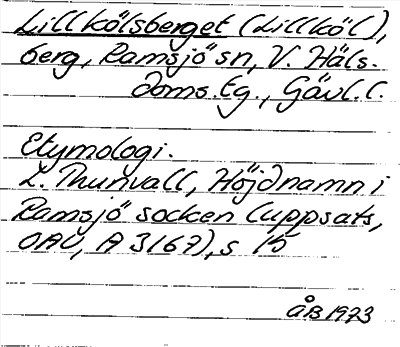 Lillkölsberget (Lillköl),
berg, Ramsjö sn, V. Häls.
Doms. Tg., Gävl.l.
Etymologi.
L. Thunvall, Höjdnamn i
Ramsjö socken (uppsats,
OAU, A 3167), s 15
ÅB 1973